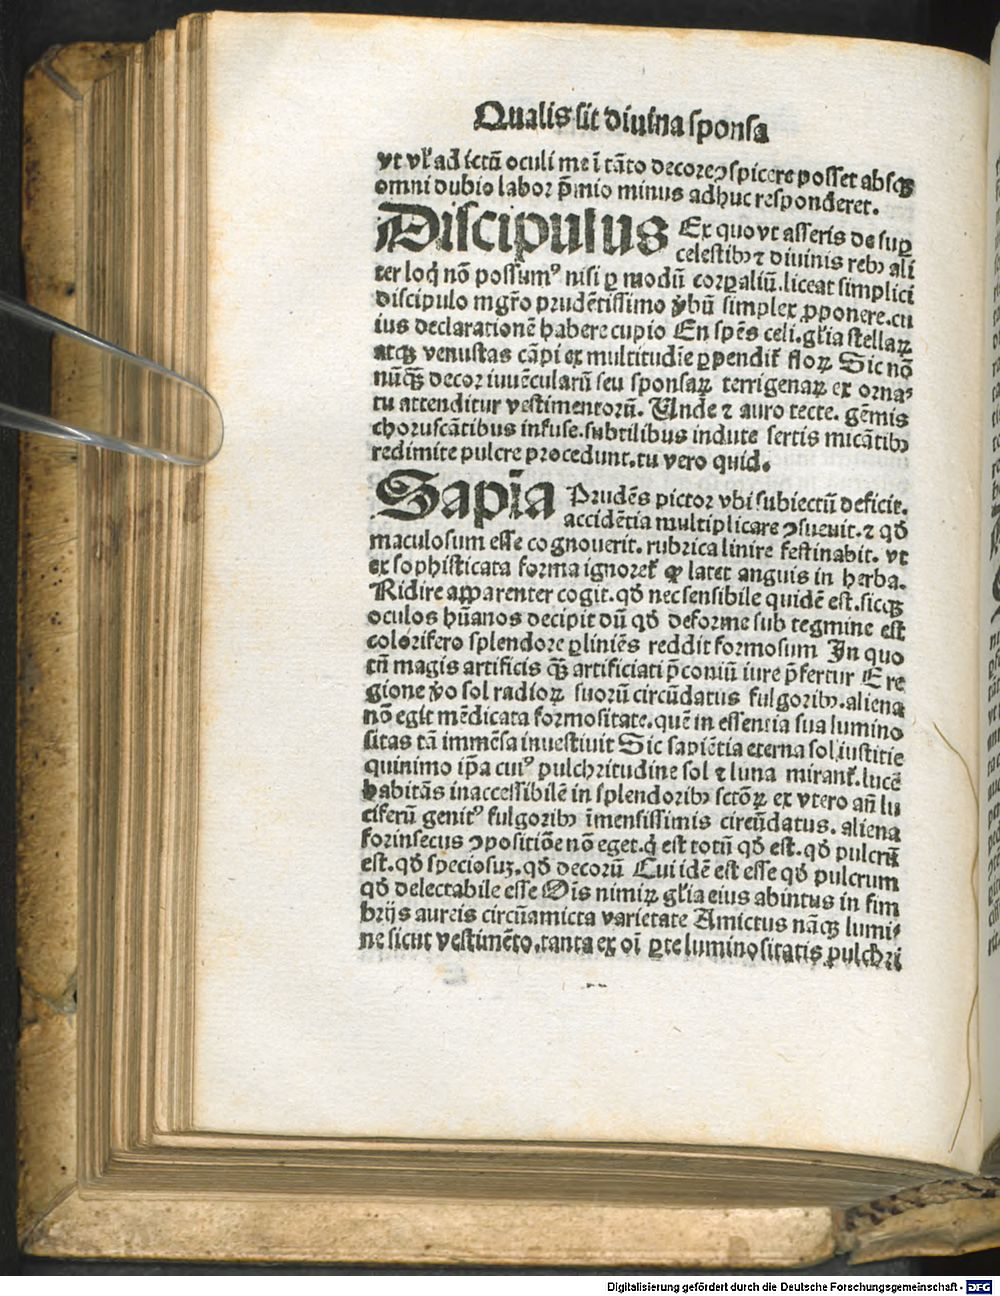 Qualis sit diuina sponsa
vt vl' ad ictū oculi me ī tāto decore ↄspicere posset absqꝫ
omni dubio labor p̄mio minus adhuc responderet.
Discipulus Ex quo vt asseris de suꝑ
celestibꝰ ⁊ diuinis rebꝰ ali
ter loq̇ nō possumꝰ nisi ꝑ modū corꝑaliū. liceat simplici
discipulo mgr̄o prudētissimo v̓bū simplex ꝓponere. cu
ius declarationē habere cupio En spēs celi. gl'ia stellaꝝ
atqꝫ venustas cāpi ex multitudīe ꝑpendit̄ floꝝ Sic nō
nūqꝫ̄ decor iuuēcularū seu sponsaꝝ terrigenaꝝ ex orna⸗
tu attenditur vestimentorū. Unde ⁊ auro tecte. gēmis
choruscātibus infuse. subtilibus indute sertis micātibꝰ
redimite pulcre procedunt. tu vero quid.
Sapīa Prudēs pictor vbi subiectū deficit.
accidētia multiplicare ↄsueuit. ⁊ qd̄
maculosum esse cognouerit. rubrica linire festinabit. vt
ex sophisticata forma ignoret̄ ꝙ latet anguis in herba.
Ridire apparenter cogit. qd̄ nec sensibile quidē est. sicqꝫ
oculos hūanos decipit dū qd̄ deforme sub tegmine est
colorifero splendore ꝑliniēs reddit formosum In quo
tn̄ magis artificis qꝫ̄ artificiati p̄coniū iure p̄fertur E re
gione v̓o sol radioꝝ suorū circūdatus fulgoribꝰ. aliena
nō eget mēdicata formositate. quē in essentia sua lumino
sitas tā immēsa inuestiuit Sic sapiētia eterna sol iustitie
quinimo ip̄a cuiꝰ pulchritudine sol ⁊ luna mirant̄. lucē
habitās inaccessibilē in splendoribꝰ sctōꝝ ex vtero añ lu
ciferū genitꝰ fulgoribꝰ īmensissimis circūdatus. aliena
forinsecus ↄpositiōe nō eget. q̇ est totū qd̄ est. qd̄ pulcrū
est. qd̄ speciosuꝫ. qd̄ decorū Cui idē est esse qd̄ pulcrum
qd̄ delectabile esse Oīs nimiꝝ gl'ia eius abintus in fim
brijs aureis circūamicta varietate Amictus nāqꝫ lumi⸗
ne sicut vestimēto. tanta ex oī ꝑte luminositatis pulchri
Digitalisierung gefördert durch die Deutsche Forschungsgemeinschaft - DFG